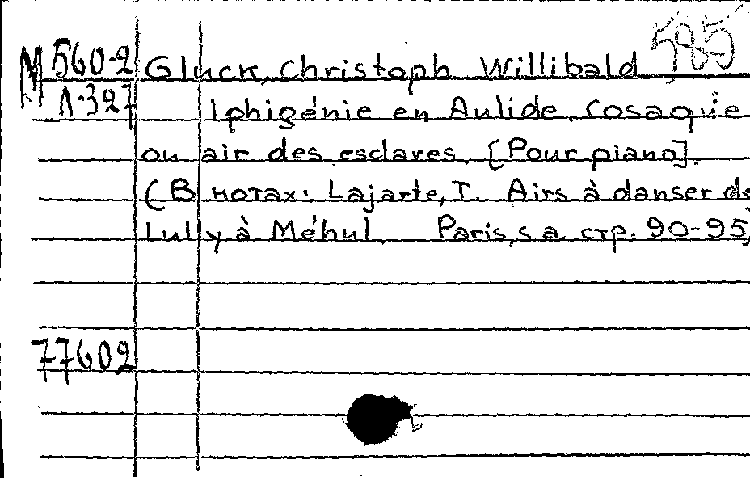 585
М 560-2 Gluck, Christoph Willibald
Л-327 Iphigénie en Aulide. Cosaque
ou air des esclaves. [Pour piano].
(В нотах: Lajarte, T. Airs à danser de
Lully à Méhul. Paris, s.a. стр. 90-95)
77602